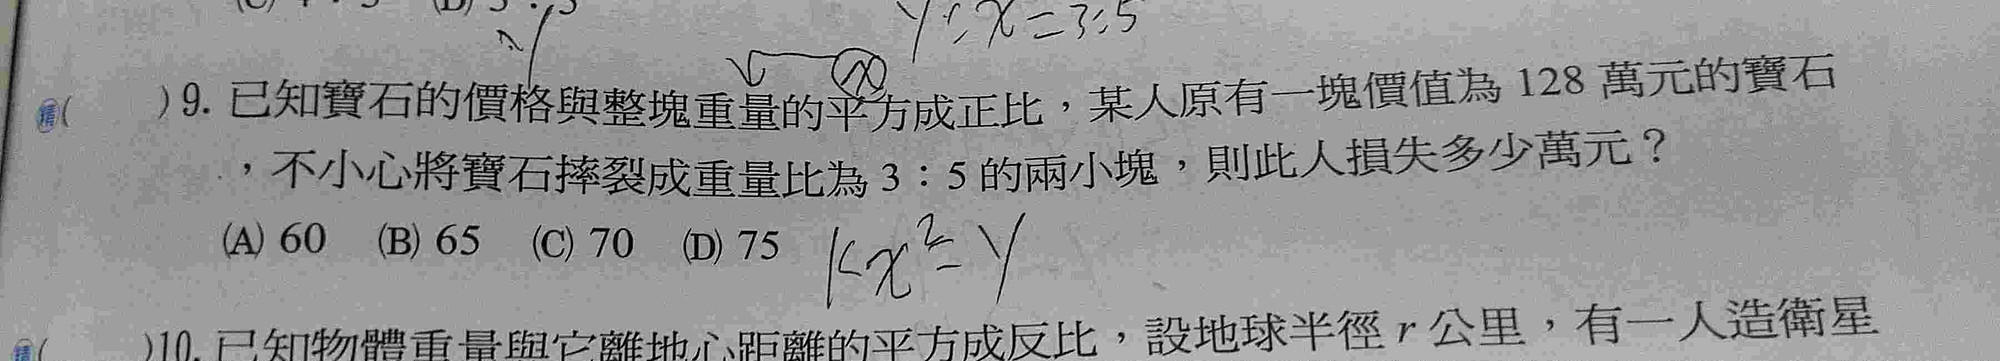 y:x=3:5
精( )9. 已知寶石的價格與整塊重量的平方成正比，某人原有一塊價值為 128 萬元的寶石
，不小心將寶石摔裂成重量比為 3：5 的兩小塊，則此人損失多少萬元？
(A) 60 (B) 65 (C) 70 (D) 75 kx²=y
精( )10. 已知物體重量與它離地心距離的平方成反比，設地球半徑 r 公里，有一人造衛星